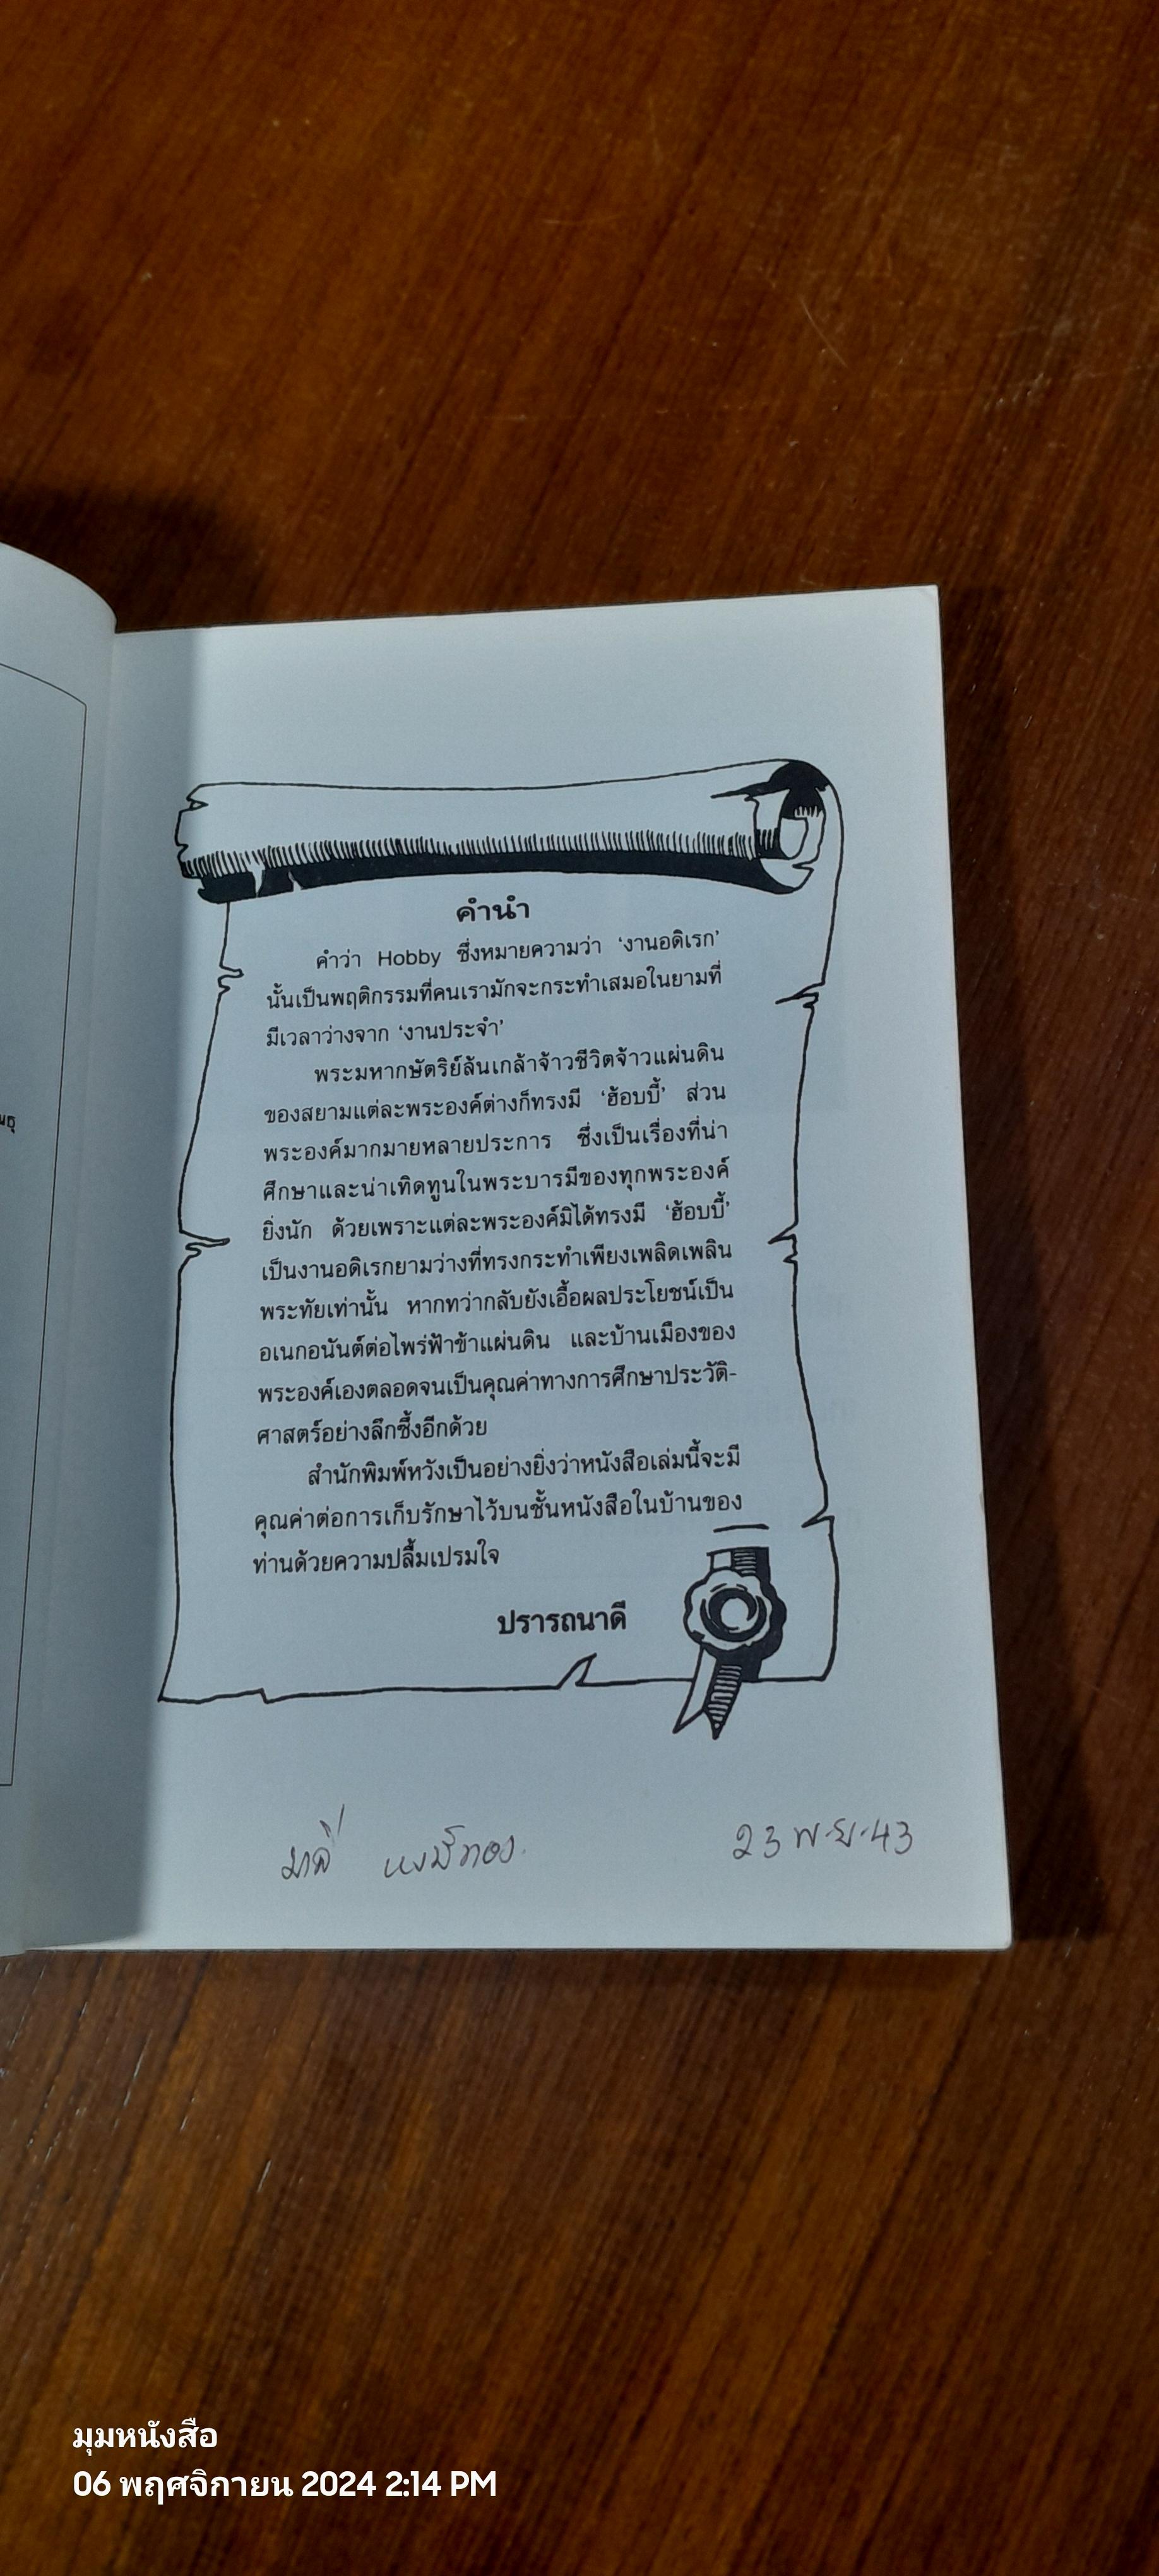 คำนำ
คำว่า Hobby ซึ่งหมายความว่า ‘งานอดิเรก’
นั้นเป็นพฤติกรรมที่คนเรามักจะกระทำเสมอในยามที่
มีเวลาว่างจาก ‘งานประจำ’
พระมหากษัตริย์ล้นเกล้าจ้าวชีวิตจ้าวแผ่นดิน
ของสยามแต่ละพระองค์ต่างก็ทรงมี ‘ฮ้อบบี้’ ส่วน
พระองค์มากมายหลายประการ ซึ่งเป็นเรื่องที่น่า
ศึกษาและน่าเทิดทูนในพระบารมีของทุกพระองค์
ยิ่งนัก ด้วยเพราะแต่ละพระองค์มิได้ทรงมี ‘ฮ้อบบี้’
เป็นงานอดิเรกยามว่างที่ทรงกระทำเพียงเพลิดเพลิน
พระทัยเท่านั้น หากทว่ากลับยังเอื้อผลประโยชน์เป็น
อเนกอนันต์ต่อไพร่ฟ้าข้าแผ่นดิน และบ้านเมืองของ
พระองค์เองตลอดจนเป็นคุณค่าทางการศึกษาประวัติ-
ศาสตร์อย่างลึกซึ้งอีกด้วย
สำนักพิมพ์หวังเป็นอย่างยิ่งว่าหนังสือเล่มนี้จะมี
คุณค่าต่อการเก็บรักษาไว้บนชั้นหนังสือในบ้านของ
ท่านด้วยความปลื้มเปรมใจ
ปรารถนาดี
มาลี หงษ์ทอง 23 พ.ย.43
มุมหนังสือ
06 พฤศจิกายน 2024 2:14 PM